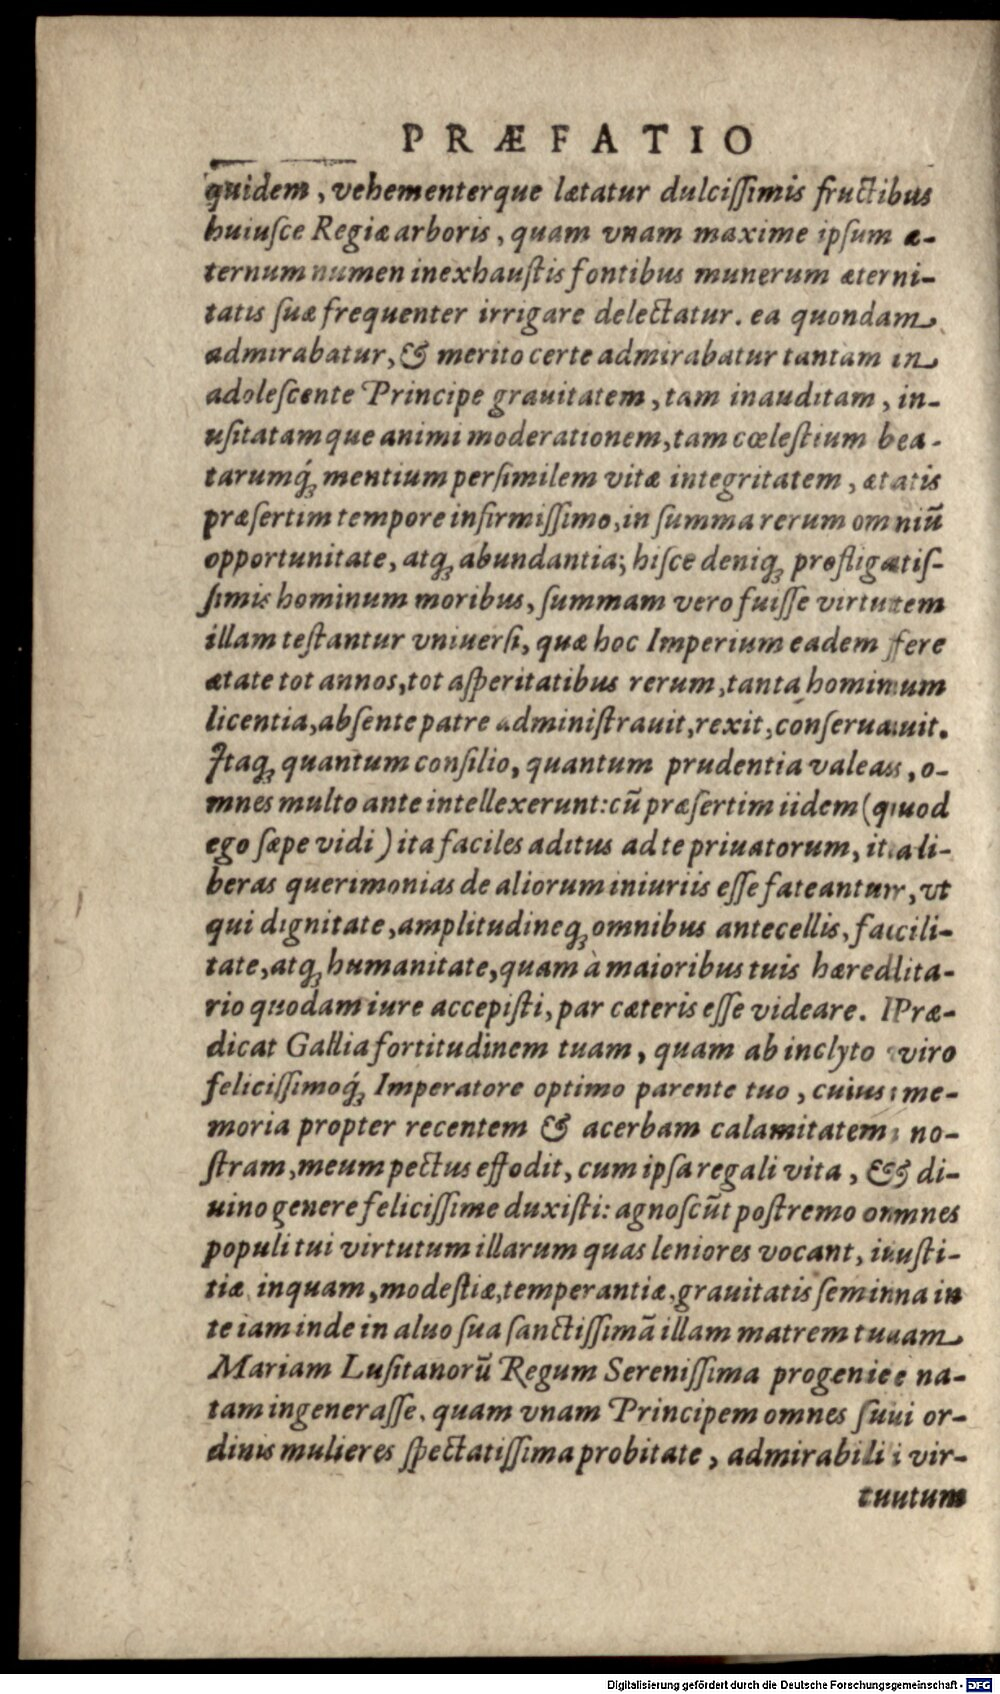 PRÆFATIO
quidem, vehementerque lætatur dulcissimis fructibus
huiusce Regiæ arboris, quam vnam maxime ipsum æ-
ternum numen inexhaustis fontibus munerum æterni-
tatis suæ frequenter irrigare delectatur. ea quondam
admirabatur, & merito certe admirabatur tantam in
adolescente Principe grauitatem, tam inauditam, in-
usitatamque animi moderationem, tam cœlestium bea-
tarumq́ꝫ mentium persimilem vitæ integritatem, ætatis
præsertim tempore infirmissimo, in summa rerum omniũ
opportunitate, atqꝫ abundantia; hisce deniqꝫ profligatis-
simis hominum moribus, summam vero fuisse virtutem
illam testantur vniuersi, quæ hoc Imperium eadem fere
ætate tot annos, tot asperitatibus rerum, tanta hominum
licentia, absente patre administrauit, rexit, conseruauit.
Itaqꝫ quantum consilio, quantum prudentia valeas, o-
mnes multo ante intellexerunt: cũ præsertim iidem (quod
ego sæpe vidi) ita faciles aditus ad te priuatorum, ita li-
beras querimonias de aliorum iniuriis esse fateantur, vt
qui dignitate, amplitudineqꝫ omnibus antecellis, facili-
tate, atqꝫ humanitate, quam à maioribus tuis hæredita-
rio quodam iure accepisti, par cæteris esse videare. Præ-
dicat Gallia fortitudinem tuam, quam ab inclyto viro
felicissimoq́ꝫ Imperatore optimo parente tuo, cuius me-
moria propter recentem & acerbam calamitatem no-
stram, meum pectus effodit, cum ipsa regali vita, & di-
uino genere felicissime duxisti: agnoscũt postremo omnes
populi tui virtutum illarum quas leniores vocant, iusti-
tiæ inquam, modestiæ, temperantiæ, grauitatis semina in
te iam inde in aluo sua sanctissimã illam matrem tuam
Mariam Lusitanorũ Regum Serenissima progenie na-
tam ingenerasse. quam vnam Principem omnes sui or-
dinis mulieres spectatissima probitate, admirabili vir-
tutum
Digitalisierung gefördert durch die Deutsche Forschungsgemeinschaft - DFG